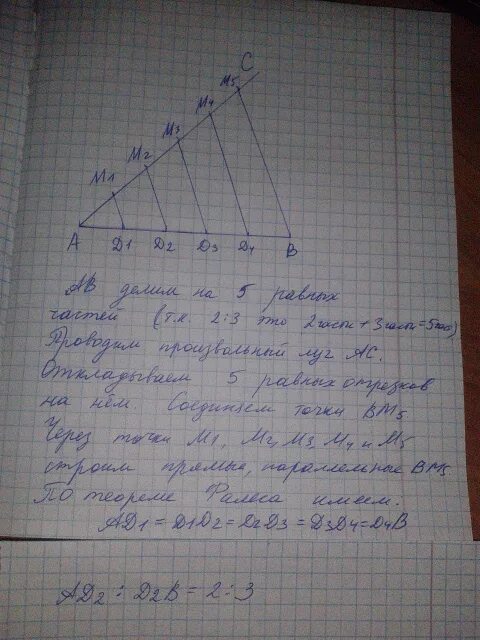 C
M5
M4
M3
M2
M1
A D1 D2 D3 D4 B
АВ делим на 5 равных
частей (т.к. 2:3 это 2 части + 3 части = 5 час)
Проводим произвольный луч АС.
Откладываем 5 равных отрезков
на нём. Соединяем точки ВМ5
Через точки М1, М2, М3, М4 и М5
строим прямые, параллельные ВМ5
По теореме Фалеса имеем.
AD1 = D1D2 = D2D3 = D3D4 = D4B
AD2 : D2B = 2:3